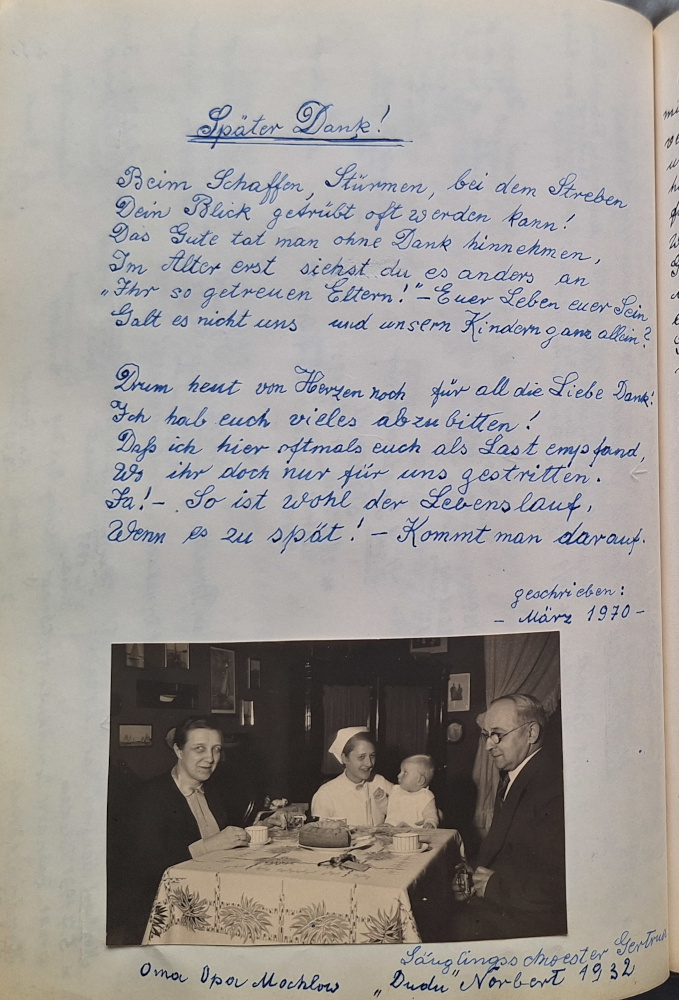 Später Dank!
Beim Schaffen, Stürmen, bei dem Streben
Dein Blick getrübt oft werden kann!
Das Gute tat man ohne Dank hinnehmen,
Im Alter erst siehst du es anders an
„Ihr so getreuen Eltern!" – Euer Leben euer Sein
Galt es nicht uns und unsern Kindern ganz allein?
Drum heut von Herzen noch für all die Liebe Dank!
Ich hab euch vieles abzubitten!
Daß ich hier oftmals euch als Last empfand,
Wo ihr doch nur für uns gestritten.
Ja! – So ist wohl der Lebenslauf,
Wenn es zu spät! – Kommt man darauf.
geschrieben:
– März 1970 –
Säuglingsschwester Gertrud
Oma Opa Mochlow „Dudu" Norbert 1932